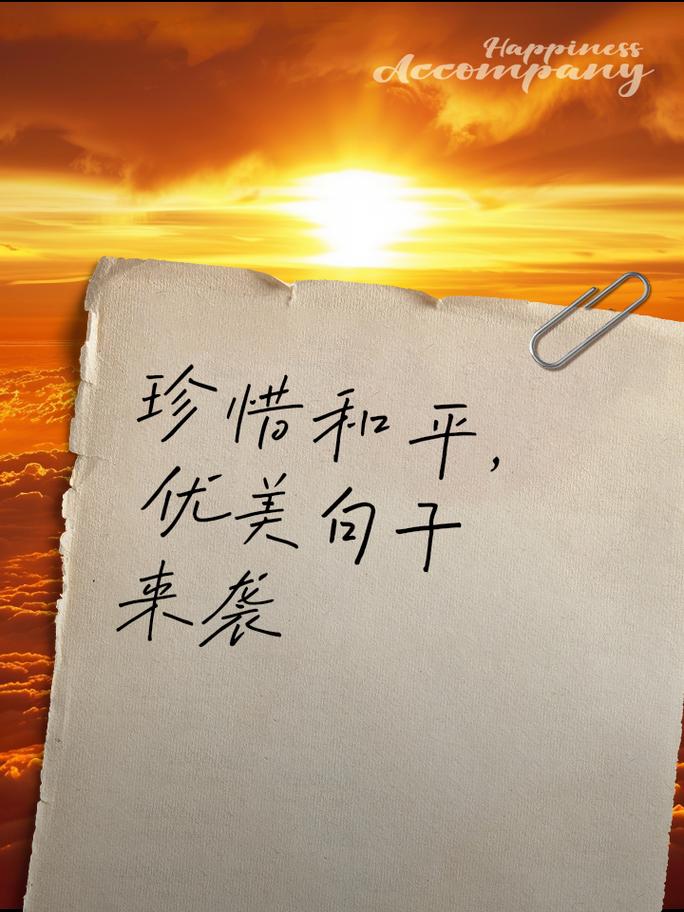 Happiness
Accompany
珍惜和平,
优美句子
来袭